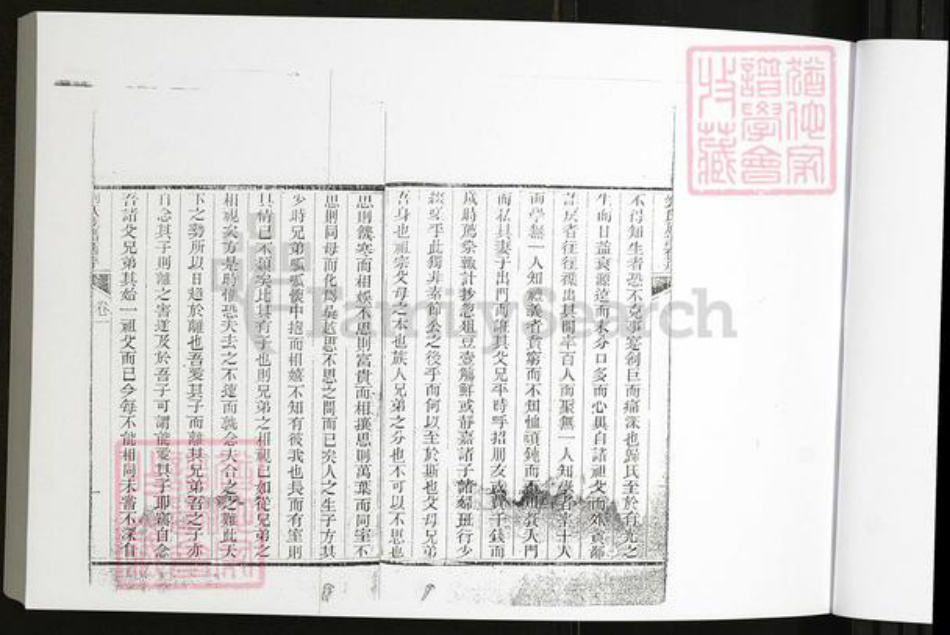 不得知生者恐不見事寔創巨而痛深也歸氏至於有光之
生而日益衰源遠而末分口多而心異自諸祖父而外貪鄙
詐戾者往往雜出其間率百人而聚無一人知學者率十人
而學無一人知禮義者貧窮而不知恤頑鈍而不知教入門
而私其妻子出門而誑其父兄平時呼招朋友或費千錢而
歲時薦祭輒計抄忽俎豆壺觴鮮或靜嘉諸子諸婦班行少
綴嗟乎此獨非素節公之後乎而何以至於斯也父母兄弟
吾身也祖宗父母之本也族人兄弟之分也不可以不思也
思則饑寒而相娛不思則富貴而相攘思則萬葉而同室不
思則同母而化為吳越思不思之間而已矣人之生子方其
少時兄弟呱呱懷中抱而相嬉不知有彼我也長而有室則
其情已不類矣比其有子也則兄弟之相視已如從兄弟之
相視矣方是時惟恐夫去之不遠而孰念夫合之之難此天
下之勢所以日趨於離也吾愛其子而離其兄弟吾之子亦
自念其子則離之害遂及於吾子可謂能愛其子耶嘗自念
吾諸父兄弟其始一祖父而已今每不能相同未嘗不深自
卷一